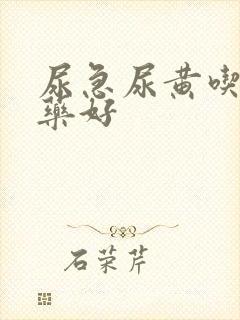 尿急尿黄喫
藥好
石荣芹